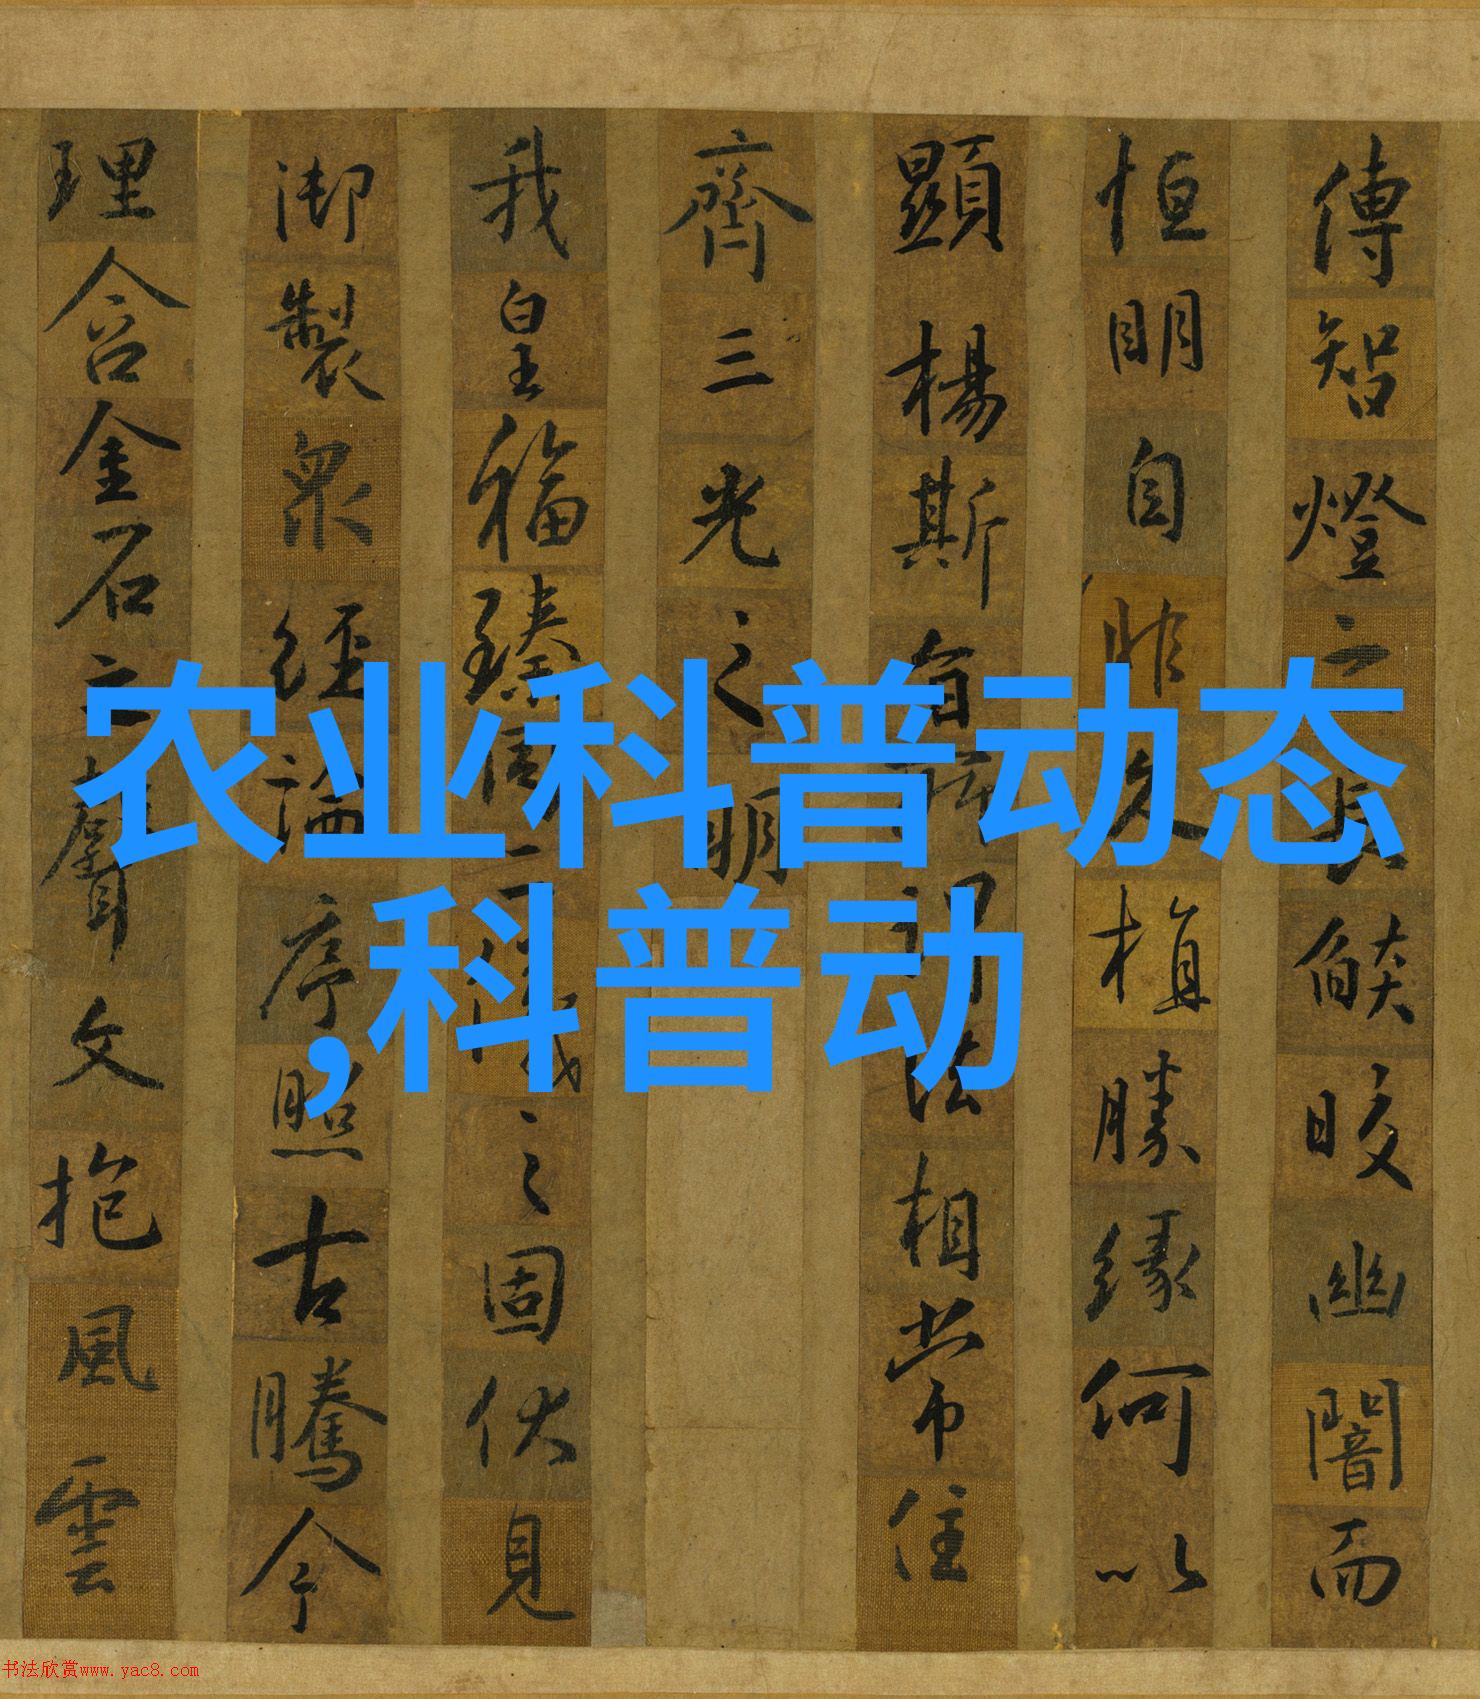 农业科普动态
,科普动
傳智燈之長燄皎幽闇而
恒明自非久植勝緣何以
顯楊斯旨所謂法相常住
齊三光之明
我皇福臻同二儀之固伏見
御製衆經論序照古騰今
理含金石之聲文抱風雲
书法欣赏www.yac8.com